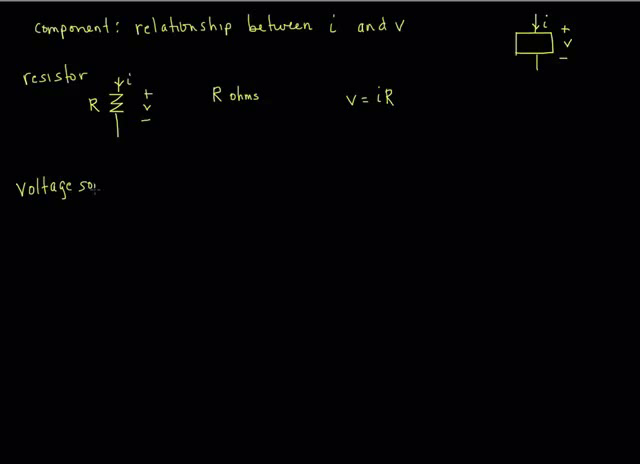 component: relationship between i and v
i
+
v
−
resistor
i
R
+
v
−
R ohms
v = iR
Voltage sou